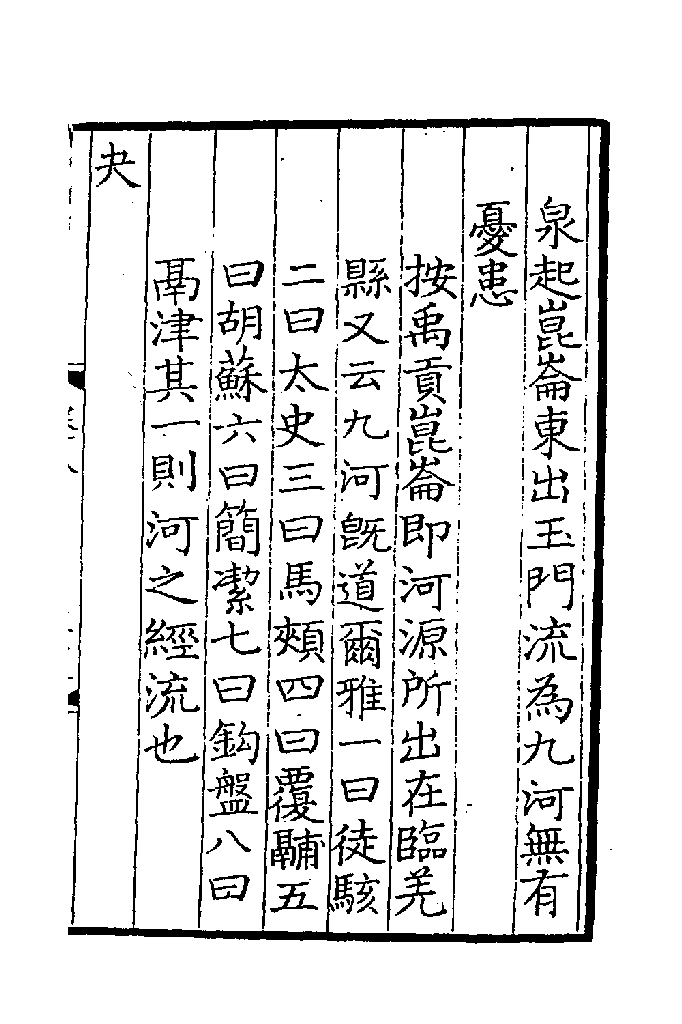 泉起崑崙東出玉門流為九河無有
憂患
按禹貢崑崙即河源所出在臨羌
縣又云九河旣道爾雅一曰徒駭
二曰太史三曰馬頰四曰覆鬴五
曰胡蘇六曰簡潔七曰鈎盤八曰
鬲津其一則河之經流也
夬